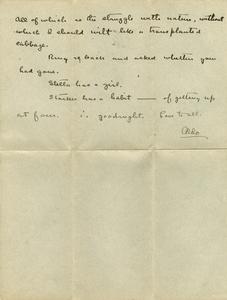 All of which is the struggle with nature, without
which I should wilt like a transplanted
cabbage.
Ring up back and asked whether you
had gone.
Stella has a girl.
Starker has a habit — of getting up
at four. goodnight. to all.
Aldo